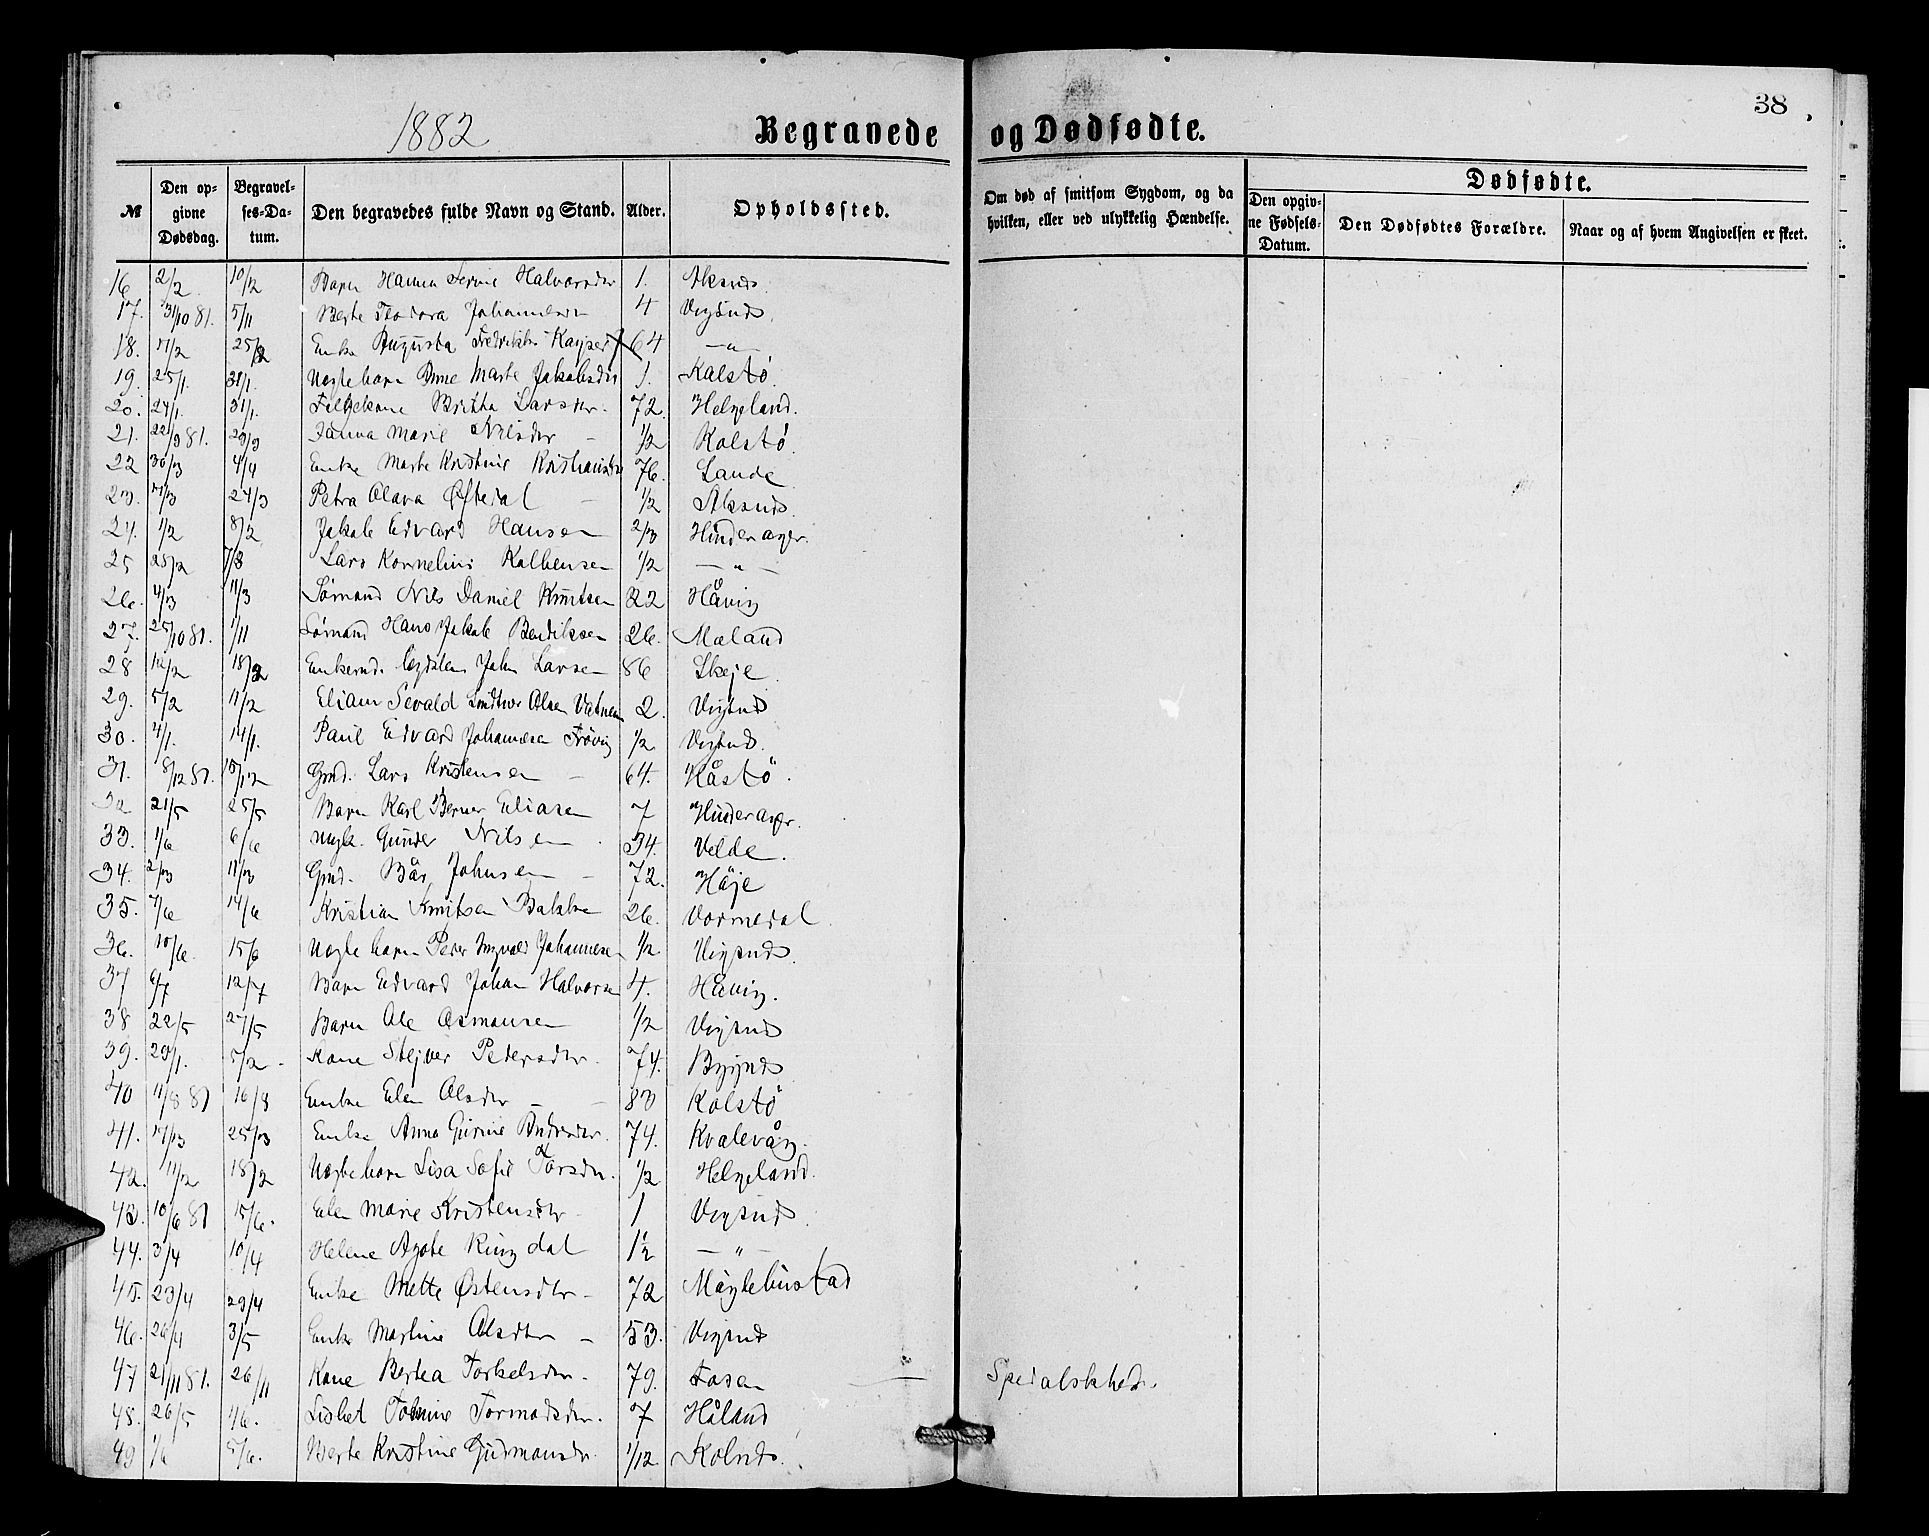 38
1882 Begravede og Dødfødte.
№ Den opgivne Dødsdag. Begravelses-Datum. Den begravedes fulde Navn og Stand. Alder. Opholdssted. Om død af smitsom Sygdom, og da hvilken, eller ved ulykkelig Hændelse. Dødfødte. Den opgivne Fødsels-Datum. Den Dødfødtes Forældre. Naar og af hvem Angivelsen er skeet.
16 2/2 10/2 Barn Hanna Halvorsdtr 1. Aksnds
17. 31/10 81. 5/11 Berte Teodora 4 Vigsnds
18. 25/2 Enke Augusta Fredrikke Kayser 64 — " —
19. 25/1. 31/1. Ægtebarn Anne Marte Jakobsdtr 1. Kalstø.
20. 24/1. 31/1. Britha Larsdtr. 72. Helgeland.
21. 22/9 81. 29/9 Marie Nilsdtr — 1/2 Kolstø
22 30/3 4/4 Enke Marte Kristine Kristiansdtr 76. Lande
23. 24/3 Petra Olava Øftedal — 1/2 Aksnds.
24. 1/2 8/2 Jakob Edvard Hansen 2/3 Hinderager.
25 25/2 7/3 Lars Kornelius Kolbensen 1/2 — " —
26. 4/3 11/3 Sømand Nils Daniel Knutsen 22 Håvig
27. 25/10 81. 1/11 Sømand Hans Jakob Bendiksen 26. Mæland
28 12/2 18/2 Enkemd. John Larsen 86 Skeje
29. 5/2 11/2 Eliam Sevald Olsen Vatnem 2. Vigsnds
30. 4/1. 14/1. Paul Edvard Johannesen Frøvig 1/2 Vigsnds.
31. 8/12 81. 15/12 Gmd. Lars Kristensen — 64. Kåstø.
32 21/5 25/5 Barn Karl Berner Eliasen 7 Hinderager.
33. 1/6 6/6 Ungk. Gunder Nilsen 34. Velde.
34. 2/3 11/3 Gmd. Bår Johnsen — 72. Høje
35. 7/6 14/6 Kristian Knutsen Bakken 26. Vormedal
36. 10/6. 15/6 Ægtebarn Peder Ingvald Johannesen 1/2 Vigsnds.
37 6/7 12/7 Barn Edvard Johan Halvorsen 4. Håvig.
38 22/5 27/5 Barn Ole Osmonsen 1/2 Vigsnds
39. 29/1. 5/2. Kone Petersdtr. 74. Bygnds
40 11/8 81 16/8 Enke Elen Olsdtr — 83 Kolstø
41. 25/3 Enke Anna Gurine 74. Kvalevåg.
42. 11/2 18/2 Ægtebarn Lisa Sofie Torsdtr. 1/2 Helgeland.
43. 10/6 81 15/6. Elen Marie Kristensdtr 1 Vigsnds.
44. 3/4 10/4 Helene Agate Ringdal 1½ — " —
45. 23/4 29/4 Enke Mette Østensdtr — 72 Møglebustad
46. 26/4 3/5 Enke Martine Olsdtr — 53. Vigsnds
47 21/11 81. 26/11 Kone Bertea Torkelsdtr. 79. Fosen Spedalskhed.
48. 26/5 4/6. Lisbet Tormodsdtr. 7 Håland
49 1/6 5/6. Berte Kristine Gudmonsdr. 1/12 Kolnds.